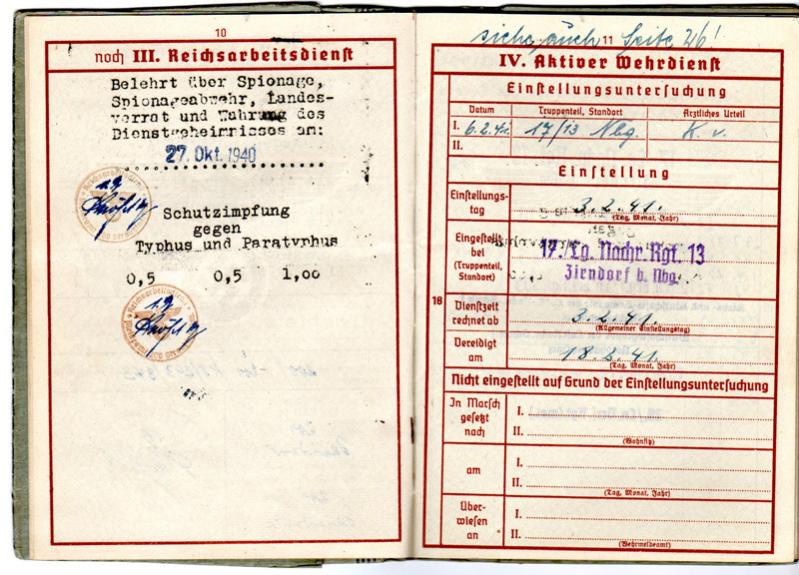 10
noch III. Reichsarbeitsdienst
Belehrt über Spionage,
Spionageabwehr, Landes-
verrat und Wahrung des
Dienstgeheimnisses am:
27. Okt. 1940
Schutzimpfung
gegen
Typhus und Paratyphus
0,5 0,5 1,00
siehe auch 11 Seite 26!
IV. Aktiver Wehrdienst
Einstellungsuntersuchung
Datum Truppenteil, Standort Ärztliches Urteil
I. 6.2.41. 17/13 Nbg. K. v.
II.
Einstellung
Einstellungs-
tag 3.2.41.
(Tag, Monat, Jahr)
Eingestellt
bei 17. Lg. Nachr. Rgt. 13
(Truppenteil,
Standort) Zirndorf b. Nbg.
18
Dienstzeit
rechnet ab 3.2.41.
(Allgemeiner Einstellungstag)
Vereidigt
am 18.2.41.
(Tag, Monat, Jahr)
Nicht eingestellt auf Grund der Einstellungsuntersuchung
In Marsch
gesetzt
nach
I.
II.
(Wohnsitz)
am
I.
II.
(Tag, Monat, Jahr)
Über-
wiesen
an
I.
II.
(Wehrmeldeamt)